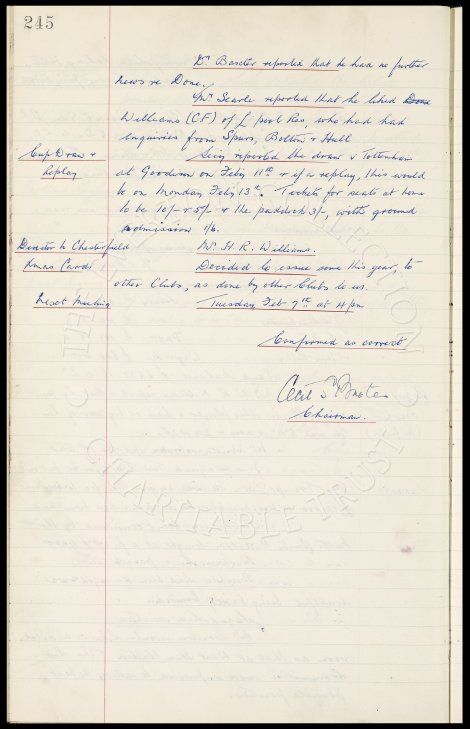 245
Dr. Baxter reported that he had no further
news re Done.
Mr. Searle reported that he liked Done
Williams (CF) of port Rec, who had had
inquiries from Spurs, Bolton & Hull
Cup Draw &
Replay
Secy reported the draw v Tottenham
at Goodison on Feby 11th & if a replay, this would
be on Monday Feby 13th. Tickets for seats at home
to be 10/- & 5/- & the paddock 3/-, with ground
admission 1/6.
Director to Chesterfield
Mr. H. R. Williams.
Xmas Cards
Decided to issue some this year, to
other Clubs, as done by other Clubs to us.
Next Meeting
Tuesday Feb 7th at 4 pm
Confirmed as correct
Cecil S
Chairman.
CHARITABLE TRUST